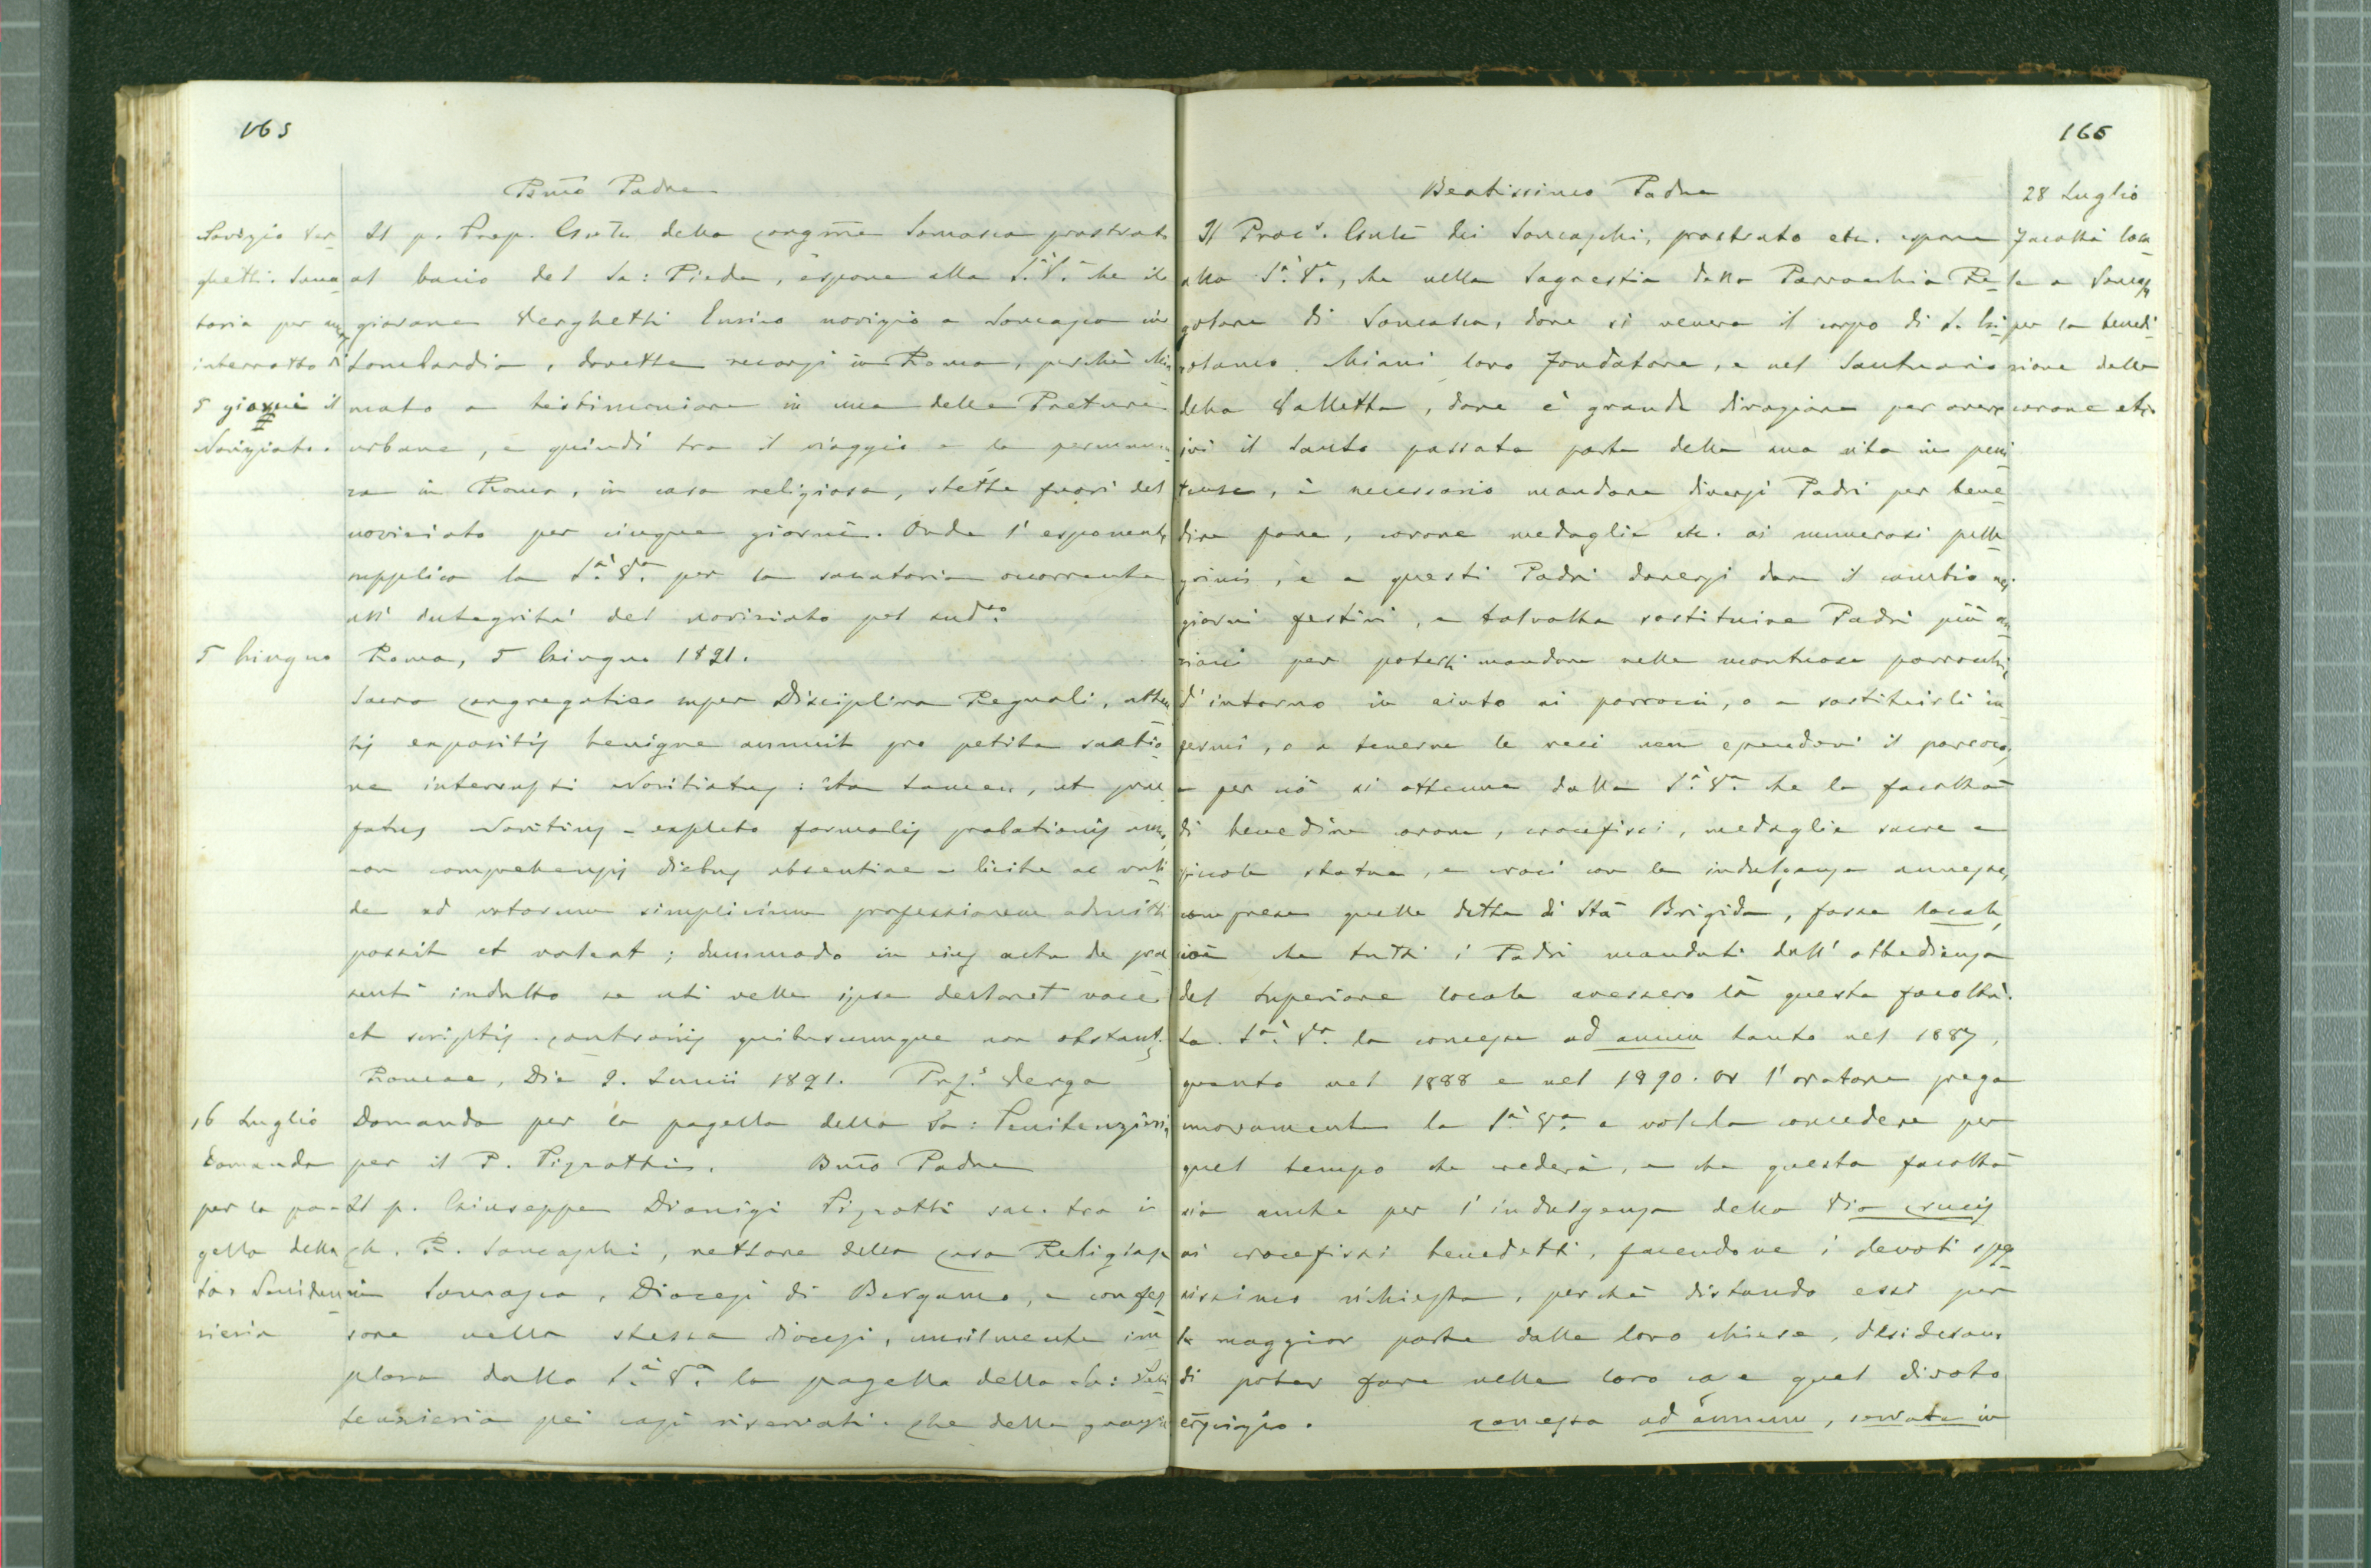 165
Bm̃o Padre
Novizio Ver-
ghetti. Sana
toria per
interrotto di
5 giorni il
Noviziato.
Il p. Prep. Gnl̃e della Congñe Somasca prostrato
al bacio del Sa: Piede, espone alla S.à V.a che il
giovane Verghetti Enrico novizio a Somasca in
Lombardia, dovette recarsi in Roma, perchè chia
mato a testimoniare in una delle Preture
urbane, e quindi tra il viaggio e la permanen
za in Roma, in casa religiosa, stette fuori del
noviziato per cinque giorni. Onde l'esponente
supplica la S.à V.a per la sanatoria occorrente
all'integrità del noviziato pel sudto.
5 Giugno
Roma, 5 Giugno 1891.
Sacra Congregatio super Disciplina Regulari, atten
tis expositis benigne annuit pro petita sanatio
ne interrupti Novitiatus: ita tamen, ut prae
fatus Novitius - expleto formalis probationis anno,
non comprehensis diebus absentiae - licite ac vali
de ad votorum simplicium professionem admitti
possit et valeat; dummodo in eius actu de prae
senti indulto se uti velle ipse declaret voce
et scriptis. Contrariis quibuscumque non obstant.
Romae, Die 9. Junii 1891. Prf.s Verga
16 Luglio
Domanda
per la pa-
gella della
Sa. Peniten
zieria
Domanda per la pagella della Sa: Penitenzieria
per il P. Pizzotti. Bm̃o Padre
Il p. Giuseppe Dionigi Pizzotti sac. tra i
Ch. R. Somaschi, rettore della Casa Religiosa
in Somasca, Diocesi di Bergamo, e confes
sore nella stessa diocesi, umilmente im
plora dalla S.à V.a la pagella della Sa: Peni
tenzieria pei casi riservati. Che della grazia
166
Beatissimo Padre
28 Luglio
Facoltà loca
le a Somasca
per la benedi
zione delle
corone etc.
Il Procr. Gnlẽ dei Somaschi, prostrato etc. espone
alla S.à V.a, che nella Sagrestia della Parrocchia Re
golare di Somasca, dove si venera il corpo di S. Gi
rolamo Miani loro Fondatore, e nel Santuario
della Valletta, dove è grande divozione per avere
ivi il Santo passata parte della sua vita in peni
tenze, è necessario mandare diversi Padri per bene
dire pane, corone medaglie etc. ai numerosi pelle
grini, e a questi Padri doversi dare il cambio nei
giorni festivi, e talvolta sostituire Padri più an
ziani per poterli mandare nelle montuose parrocchie
d'intorno in aiuto ai parroci, o a sostituirli in
fermi, o a tenerne le veci non essendovi il parroco,
e per ciò si ottenne dalla S.à V.a che la facoltà
di benedire corone, crocefissi, medaglie sacre e
piccole statue, e croci con le indulgenze annesse,
comprese quelle dette di Stã Brigida, fosse locale,
cioè che tutti i Padri mandati dall'obbedienza
del Superiore locale avessero là questa facoltà.
La S.à V.a la concesse ad annum tanto nel 1887,
quanto nel 1888 e nel 1890. Or l'oratore prega
nuovamente la S.à V.a a volerla concedere per
quel tempo che crederà, e che questa facoltà
sia anche per l'indulgenza della Via Crucis
ai crocefissi benedetti, facendone i devoti spes
sissimo richiesta, perchè distando essi per
la maggior parte dalle loro chiese, desiderano
di poter fare nelle loro case quel divoto
esercizio. Concessa ad annum, servata in